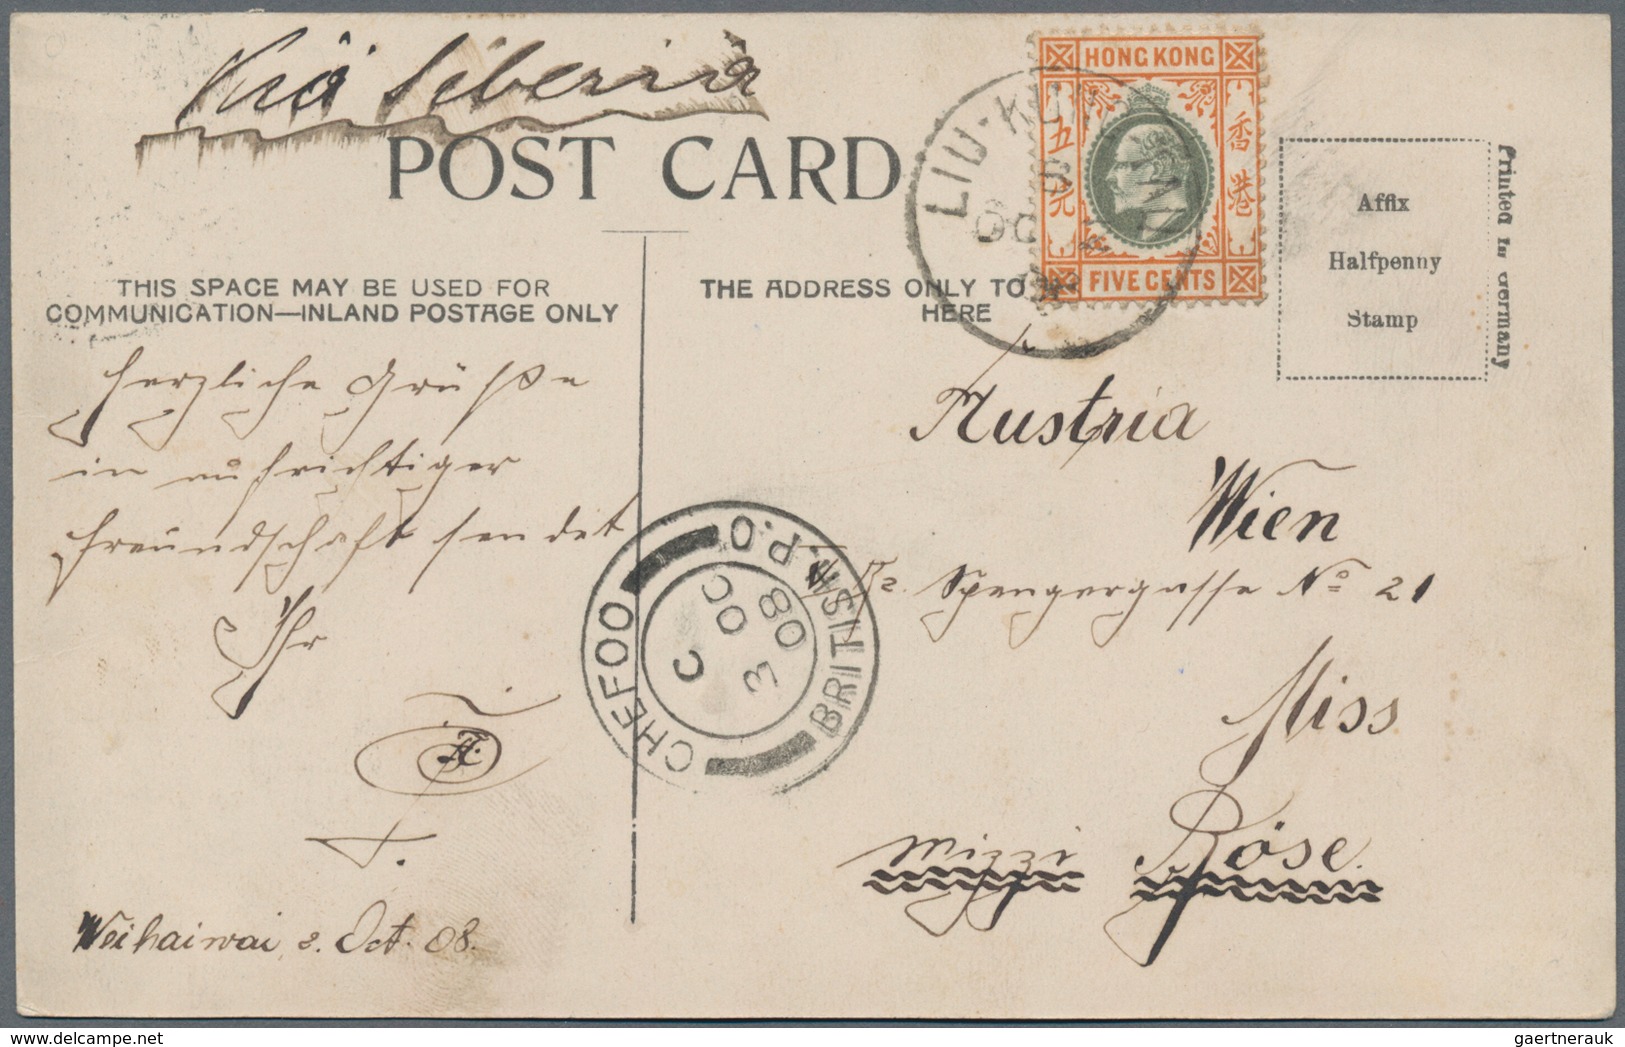 Viâ Siberia
POST CARD
HONG KONG
五
元
香
港
FIVE CENTS
LIU-KUNG
OC
THIS SPACE MAY BE USED FOR
COMMUNICATION—INLAND POSTAGE ONLY
THE ADDRESS ONLY TO
HERE
Affix
Halfpenny
Stamp
Printed in Germany
Herzliche Grüße
in aufrichtiger
Freundschaft sendet
Ihr
Weihaiwai, 2. Oct. 08.
CHEFOO
BRITISH P.O.
C
OC
3
08
Austria
Wien
Spengergasse No 21
Miss
Mizzi Böse.
gaertnerauk